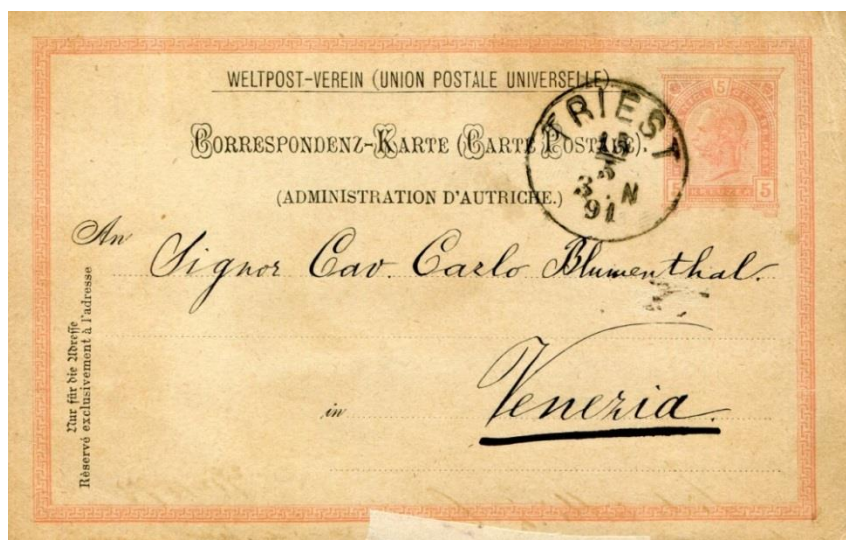 WELTPOST-VEREIN (UNION POSTALE UNIVERSELLE).
CORRESPONDENZ-KARTE (CARTE POSTALE).
(ADMINISTRATION D'AUTRICHE.)
TRIEST
3. N
91
5
5 KREUZER 5
An
Signor Cav. Carlo Blumenthal.
in Venezia.
Nur für die Adresse
Réservé exclusivement à l'adresse